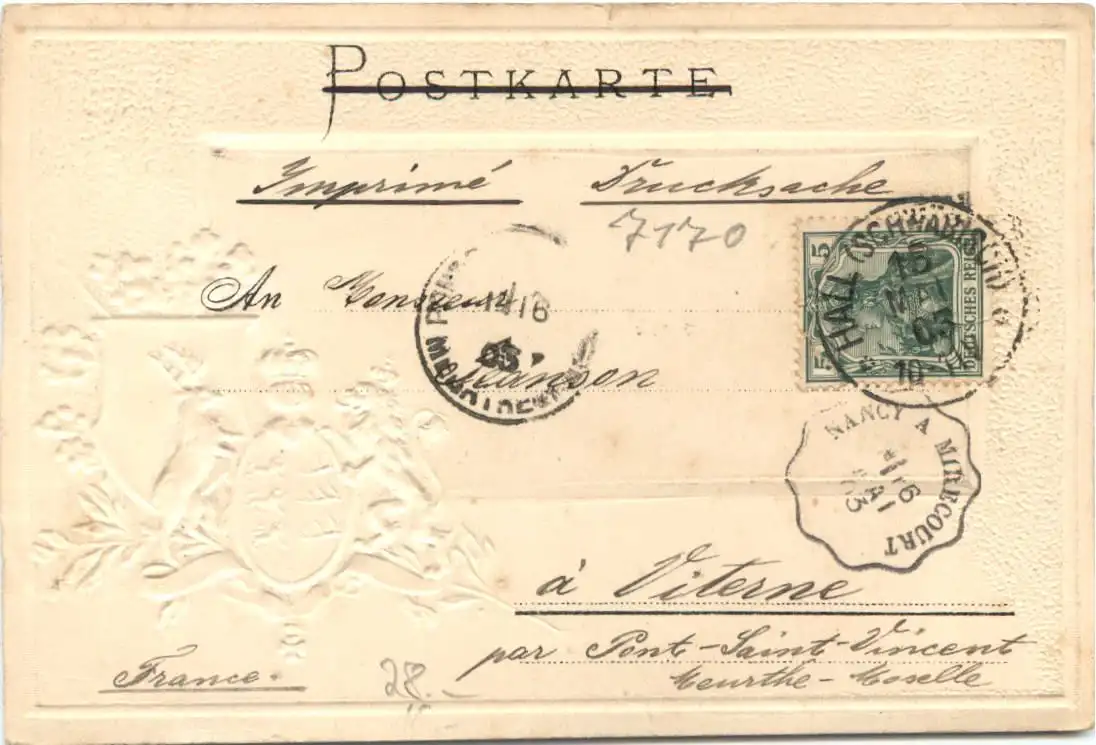 POSTKARTE
Imprimé Drucksache
7170
An Monsieur
5 DEUTSCHES REICH 5
HALL (SCHWÄB.) 15 MAI 03 10-
16 03
NANCY A MIRECOURT 16 MAI 03
à Viterne
par Pont-Saint-Vincent
Meurthe-Moselle
France.
28.-